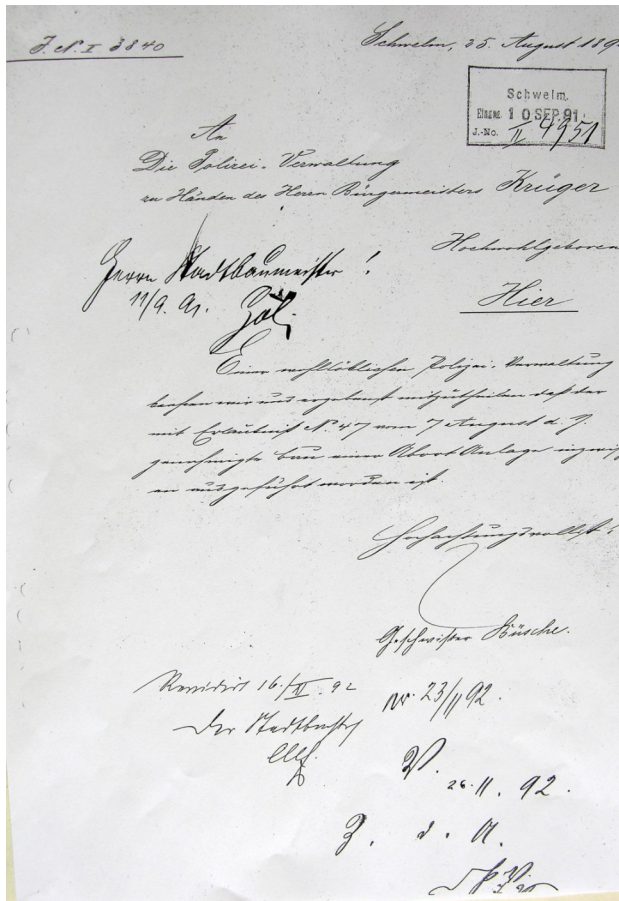 J.N. I 3840
Schwelm, 25. August 189
Schwelm.
Eingeg. 10 SEP. 91.
J.-No. II 4951
An
Die Polizei-Verwaltung
zu Händen des Herrn Bürgermeisters Krüger
Hochwohlgeboren
Hier
Herrn Stadtbaumeister!
11/9. 91.
Einer wohllöblichen Polizei-Verwaltung
beehren wir uns ergebenst mitzutheilen daß der
mit Erlaubniß N. 47 vom 7 August d. J.
genehmigte Bau einer Abort Anlage inzwisch
en ausgeführt worden ist.
Hochachtungsvollst!
Geschwister Büsche.
Revidirt 16./II. 92
Der Stadtbmstr
nr. 23/II 92.
V.
26. 11. 92.
Z. d. A.